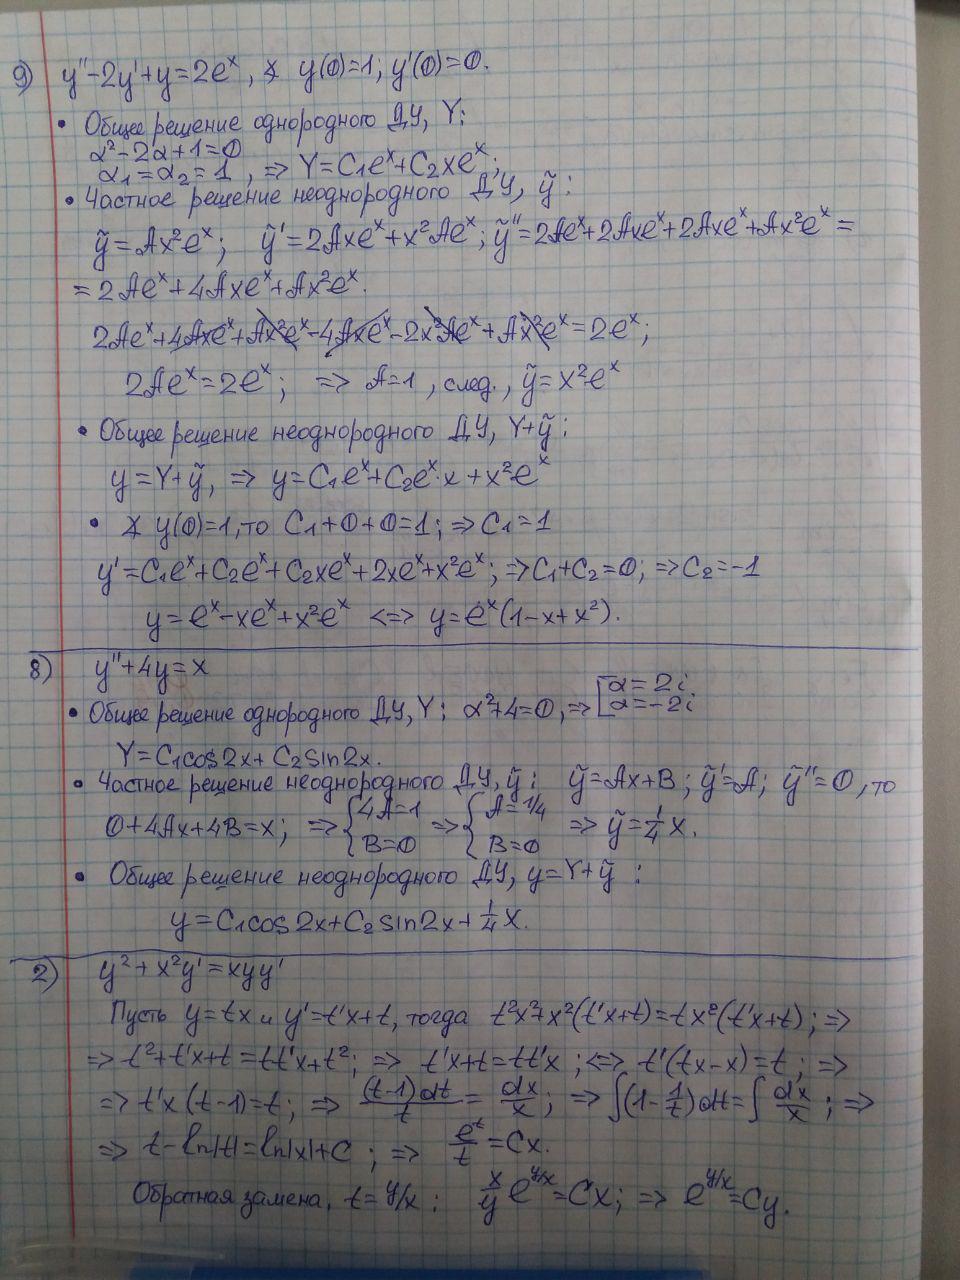 9) y''-2y'+y=2eˣ, ∡ y(0)=1; y'(0)=0.
• Общее решение однородного ДУ, Y:
α²-2α+1=0
α₁=α₂=1, => Y=C₁eˣ+C₂xeˣ;
• Частное решение неоднородного ДУ, ỹ:
ỹ=Ax²eˣ; ỹ'=2Axeˣ+x²Aeˣ; ỹ''=2Aeˣ+2Axeˣ+2Axeˣ+Ax²eˣ=
=2Aeˣ+4Axeˣ+Ax²eˣ.
2Aeˣ+4Axeˣ+Ax²eˣ-4Axeˣ-2x²Aeˣ+Ax²eˣ=2eˣ;
2Aeˣ=2eˣ; => A=1, след., ỹ=x²eˣ
• Общее решение неоднородного ДУ, Y+ỹ:
y=Y+ỹ, => y=C₁eˣ+C₂eˣ·x+x²eˣ
• ∡ y(0)=1, то C₁+0+0=1; => C₁=1
y'=C₁eˣ+C₂eˣ+C₂xeˣ+2xeˣ+x²eˣ; => C₁+C₂=0; => C₂=-1
y=eˣ-xeˣ+x²eˣ <=> y=eˣ(1-x+x²).
8) y''+4y=x
• Общее решение однородного ДУ, Y: α²+4=0, => [α=2i α=-2i
Y=C₁cos2x+C₂sin2x.
• Частное решение неоднородного ДУ, ỹ: ỹ=Ax+B; ỹ'=A; ỹ''=0, то
0+4Ax+4B=x; => {4A=1 B=0 => {A=1/4 B=0 => ỹ=1/4 x.
• Общее решение неоднородного ДУ, y=Y+ỹ:
y=C₁cos2x+C₂sin2x+1/4 x.
2) y²+x²y'=xyy'
Пусть y=tx и y'=t'x+t, тогда t²x²+x²(t'x+t)=tx²(t'x+t); =>
=> t²+t'x+t=tt'x+t²; => t'x+t=tt'x; <=> t'(tx-x)=t; =>
=> t'x(t-1)=t; => (t-1)dt/t=dx/x; => ∫(1-1/t)dt=∫dx/x; =>
=> t-ln|t|=ln|x|+C; => eᵗ/t=Cx.
Обратная замена, t=y/x: x/y e^{y/x}=Cx; => e^{y/x}=Cy.